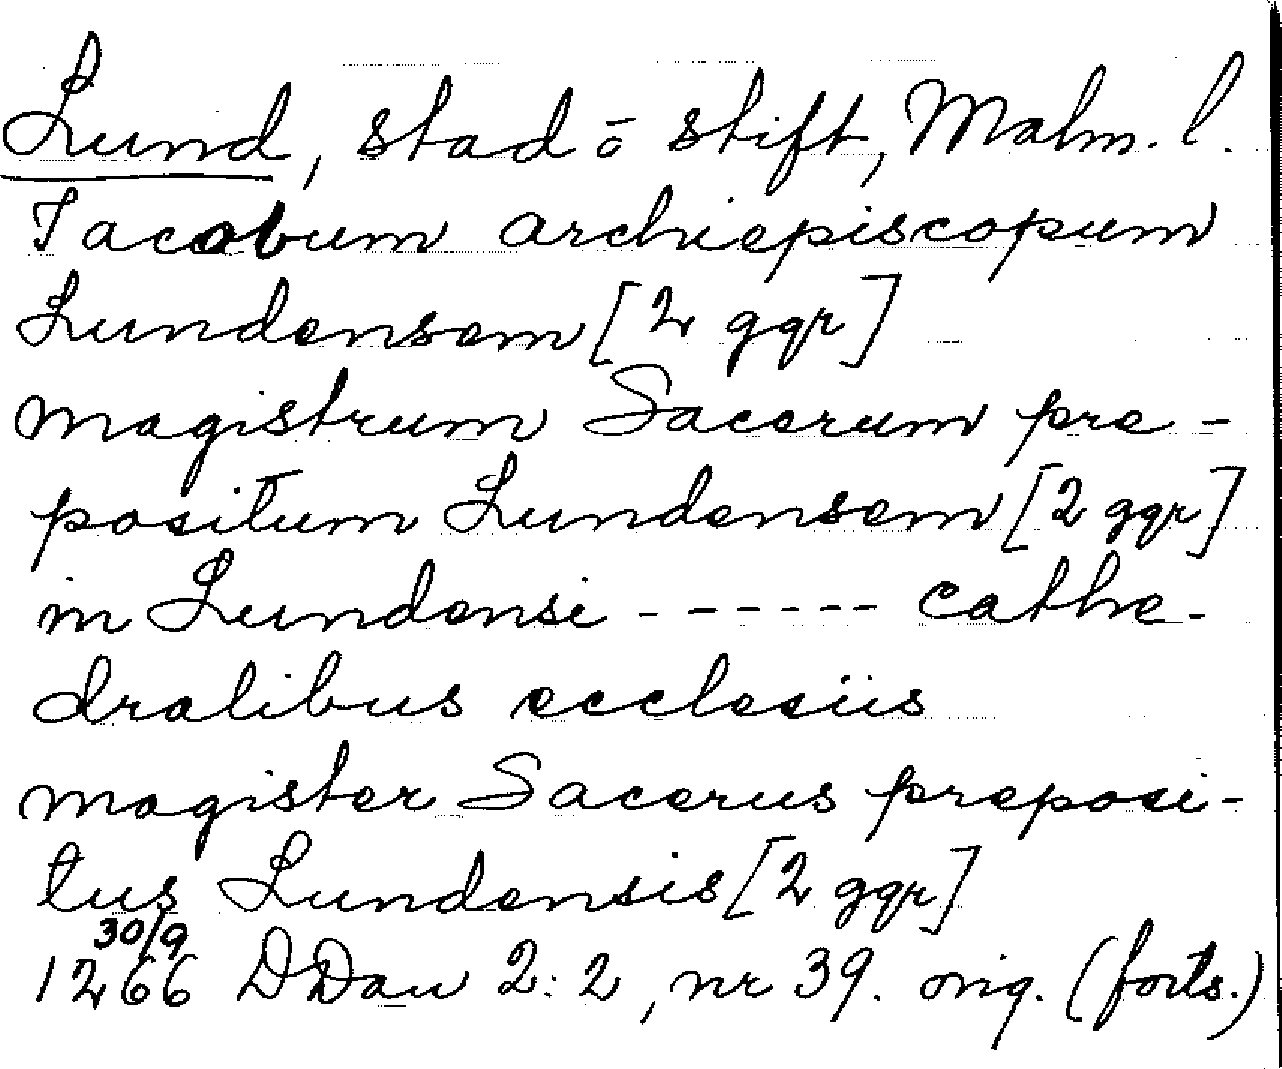 Lund, stad o stift, Malm. l.
Jacobum archiepiscopum
Lundensem [2 ggr]
magistrum Sacerum pre-
positum Lundensem [2 ggr]
in Lundensi ------ cathe-
dralibus ecclesiis
magister Sacerus preposi-
tus Lundensis [2 ggr]
30/9
1266 DDan 2:2, nr 39. orig. (forts.)